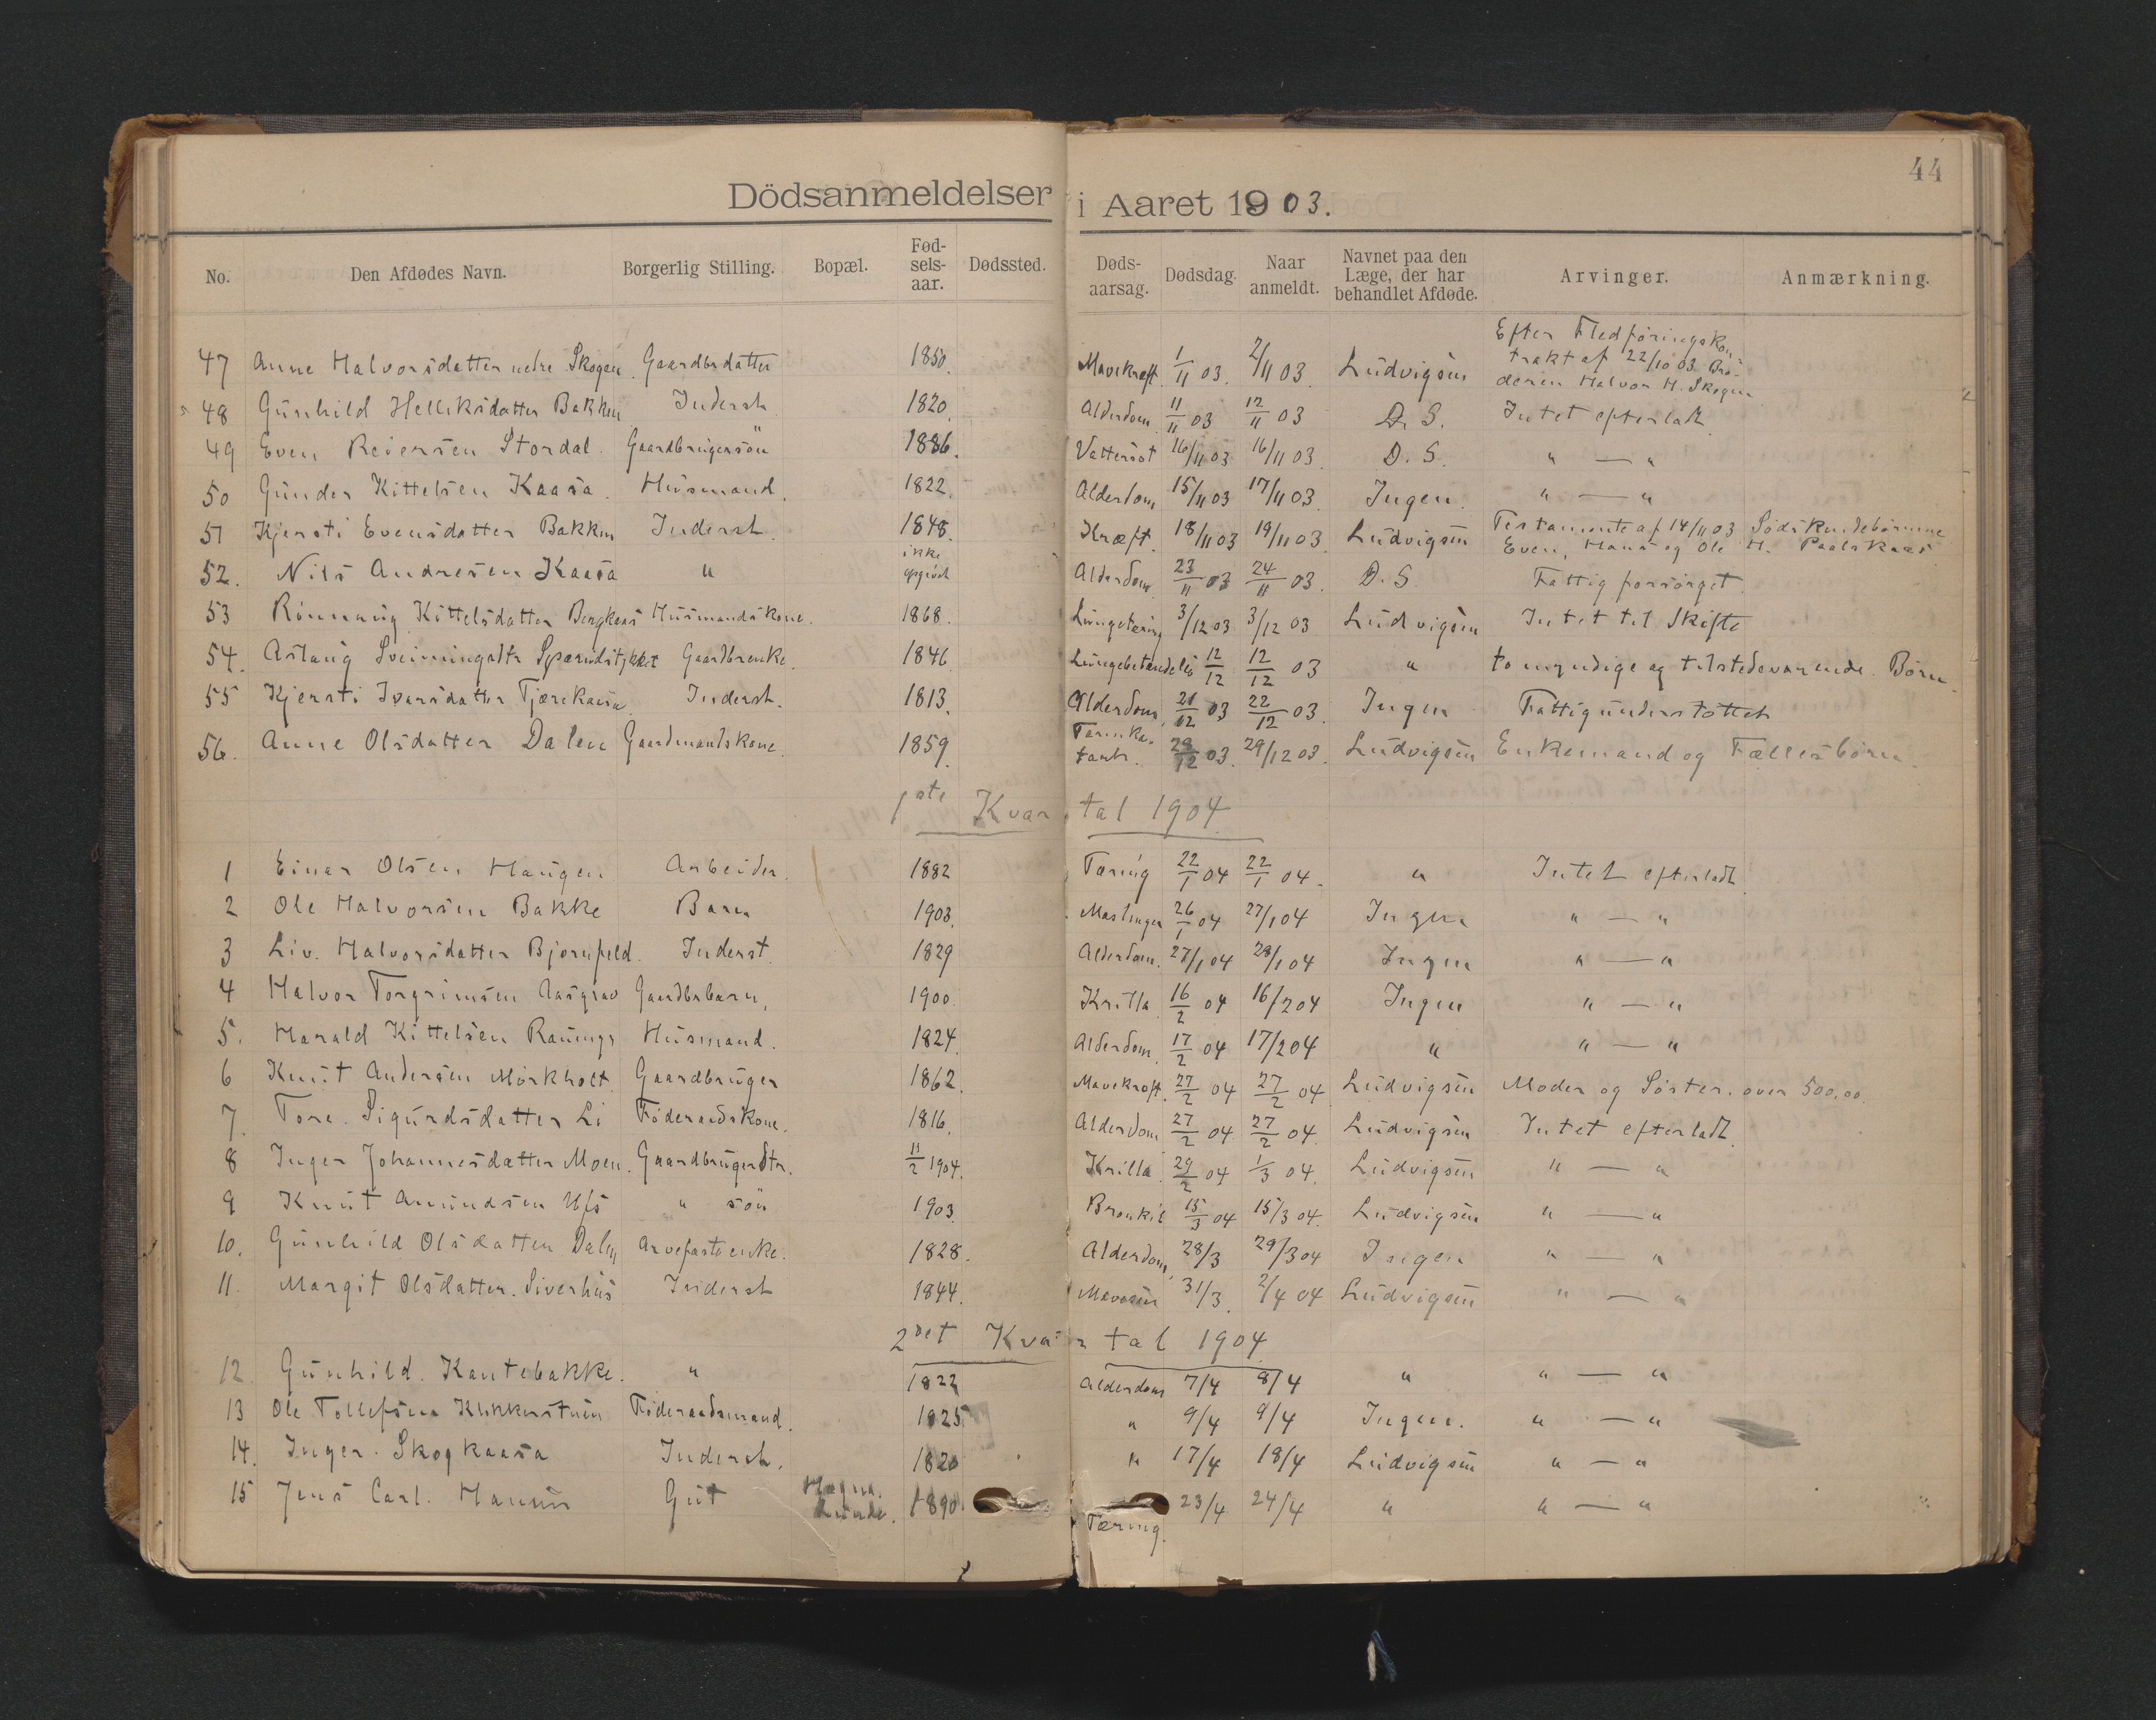 44
Dödsanmeldelser i Aaret 1903.
No. Den Afdødes Navn. Borgerlig Stilling. Bopæl. Fød-sels-aar. Dødssted. Døds-aarsag. Dødsdag. Naar anmeldt. Navnet paa den Læge, der har behandlet Afdøde. Arvinger. Anmærkning.
47 Anne Halvorsdatter nedre Skogen Gaardbrdatter 1850. Mavekræft 1/11 03. 2/11 03 Ludvigsen Efter Fledføringskontrakt af 22/10 03 Broderen Halvor H. Skogen
48 Gunhild Helliksdatter Bakken Inderst 1820. Alderdom 11/11 03 12/11 03 D. S. Intet efterladt.
49 Even Reiersen Stordal. Gaardbrugersön 1886. Vattersot 16/11 03 16/11 03 D. S. " — "
50 Gunder Kittelsen Kaasa. Husmand. 1822. Alderdom 15/11 03 17/11 03 Ingen. " — "
51 Kjersti Evensdatter Bakken Inderst 1848. Kræft. 18/11 03 19/11 03 Ludvigsen Testamente af 14/11 03 Södskendebørnene Even, Hans og Ole H. Paalskaas
52. Nils Andresen Kaasa " ikke opgivet Alderdom 23/11 03 24/11 03. D. S. Fattig forsörget.
53 Rönnaug Kittelsdatter Bergkaas Husmandskone. 1868. Lungetæring 3/12 03 3/12 03 Ludvigsen Intet til Skifte
54. Aslaug Sveinungsdtr Spærudstykket Gaardbrenke. 1846. Lungebetændelse 12/12 12/12 03 " to myndige og tilstedeværende Børn.
55 Kjersti Ivarsdatter Tjærekaasa Inderst. 1813. Alderdom, 21/12 03 22/12 03. Ingen Fattigunderstöttet
56. Anne Olsdatter Dalen Gaardmandskone. 1859. Tarmkatarh. 28/12 03. 29/12 03. Ludvigsen Enkemand og Fællesbörn.
1ste Kvartal 1904
1 Einar Olsen Haugen Arbeider. 1882 Tæring 22/1 04 22/1 04. " Intet efterladt
2 Ole Halvorsen Bakke Barn 1903. Mæslinger 26/1 04 27/1 04 Ingen " — "
3 Liv. Halvorsdatter Bjørnfeld. Inderst. 1829 Alderdom. 27/1 04 28/1 04 Ingen " — "
4 Halvor Torgrimsen Aasgrav Gaardbrbarn, 1900. Krilla 16/2 04 16/2 04 Ingen " — "
5. Harald Kittelsen Raunings Husmand. 1824. Alderdom. 17/2 04 17/2 04 " " — "
6 Knut Andersen Mörkholt. Gaardbruger 1862. Mavekræft. 27/2 04 27/2 04 Ludvigsen Moder og Söster. over 500,00.
7. Tore. Sigurdsdatter Li Föderaadskone. 1816. Alderdom 27/2 04 27/2 04. Ludvigsen Intet efterladt.
8 Inger Johannesdatter Moen. Gaardbrugerdtr. 11/2 1904. Krilla. 29/2 04 1/3 04. Ludvigsen " — "
9 Knut Amundsen Ufs " sön 1903. Bronkit 15/3 04 15/3 04. Ludvigsen " — "
10. Gunhild Olsdatter Dalen Arvefæsteenke. 1828. Alderdom, 28/3 29/3 04 Ingen " — "
11. Margit Olsdatter. Siverhus Inderst 1844. 31/3. 2/4 04 Ludvigsen " — "
2det Kvartal 1904
12. Gunhild. Kantebakke. " 1822 Alderdom 7/4 8/4 " " — "
13 Ole Tollefsen Klukkerstuen Föderaadsmand. 1825 " 9/4 9/4 Ingen. " — "
14. Inger. Skogkaasa Inderst. 1820 " 17/4 18/4 Ludvigsen " — "
15 Jens Carl. Hansen Gut Hægna. Lunde. 1890. Tæring. 23/4 24/4 " " — "